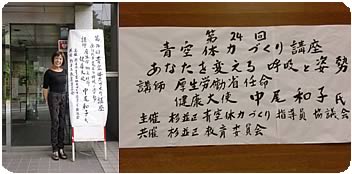 第24回
青空体力づくり講座
あなたを変える呼吸と姿勢
講師 厚生労働省任命
健康大使 中尾和子氏
主催 杉並区青空体力づくり指導員協議会
共催 杉並区教育委員会